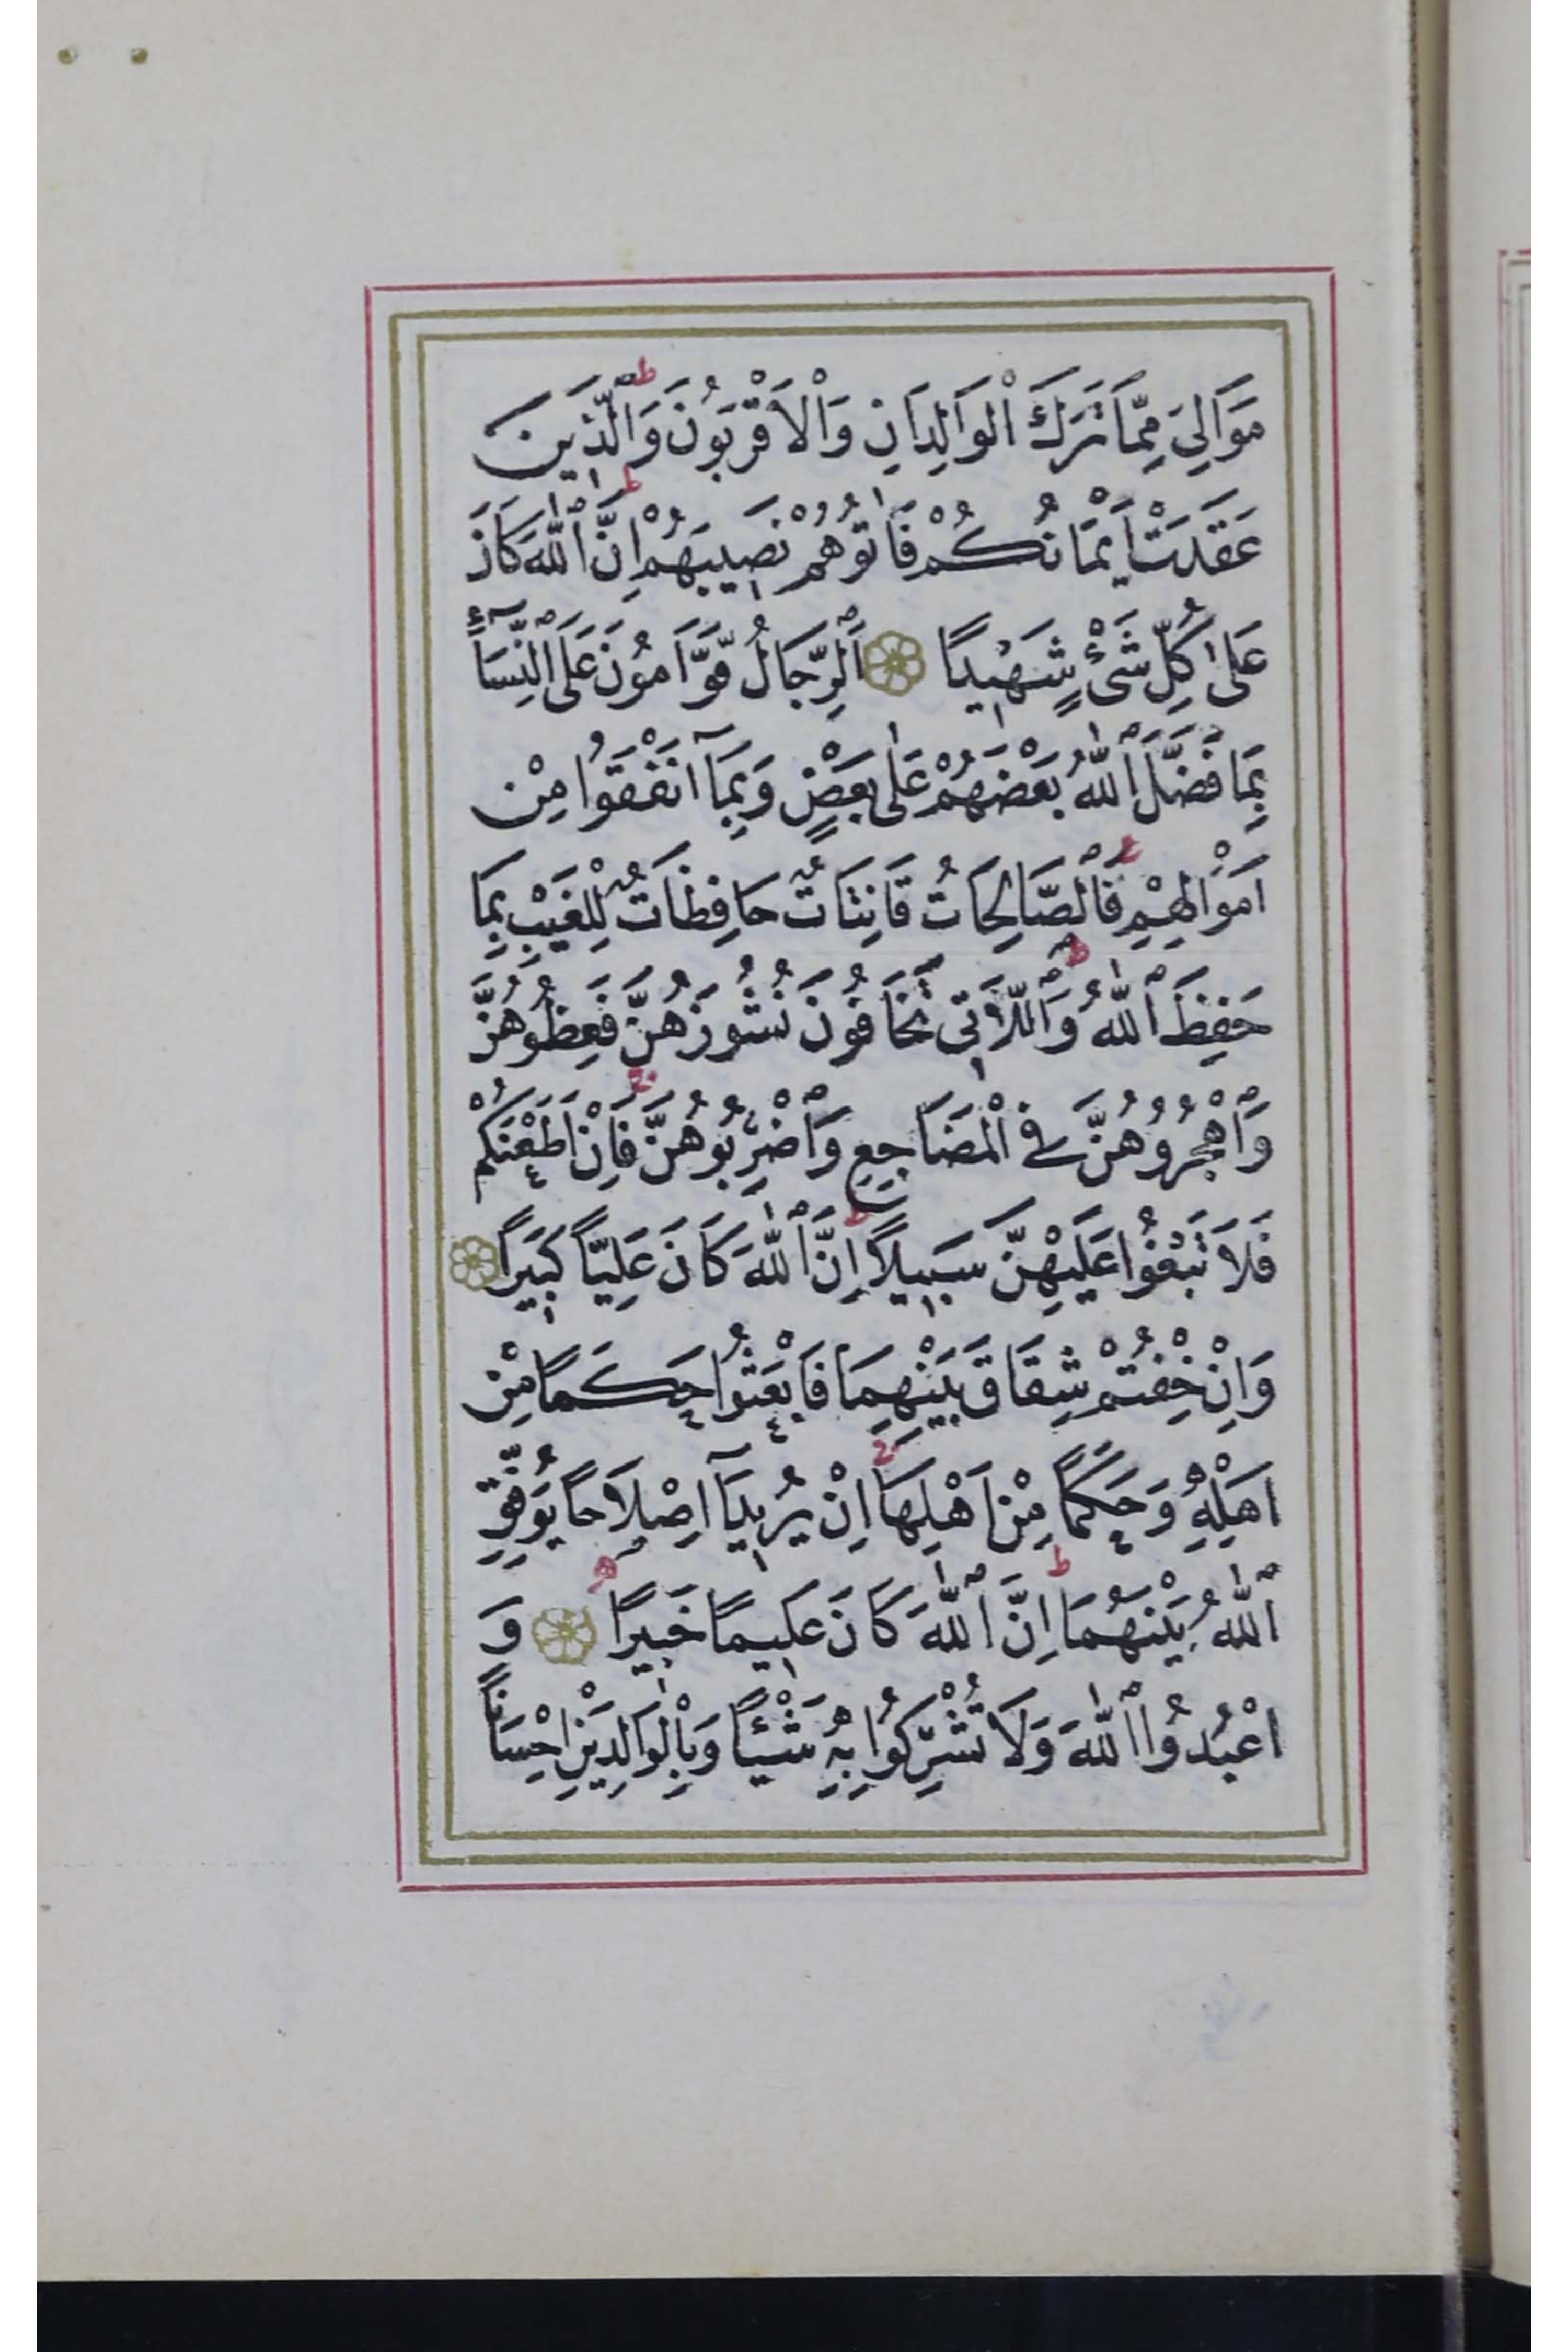 مَوَالِيَ مِمَّا تَرَكَ ٱلْوَالِدَانِ وَٱلْاَقْرَبُونَ ط وَٱلَّذ۪ينَ
عَقَدَتْ اَيْمَانُكُمْ فَاٰتُوهُمْ نَص۪يبَهُمْ ط اِنَّ ٱللّٰهَ كَانَ
عَلٰى كُلِّ شَىْءٍ شَه۪يدًا ۝ اَلرِّجَالُ قَوَّامُونَ عَلَى ٱلنِّسَٓاءِ
بِمَا فَضَّلَ ٱللّٰهُ بَعْضَهُمْ عَلٰى بَعْضٍ وَبِمَٓا اَنْفَقُوا مِنْ
اَمْوَالِهِمْ ط فَٱلصَّالِحَاتُ قَانِتَاتٌ حَافِظَاتٌ لِلْغَيْبِ بِمَا
حَفِظَ ٱللّٰهُ ط وَٱللَّات۪ى تَخَافُونَ نُشُوزَهُنَّ فَعِظُوهُنَّ
وَٱهْجُرُوهُنَّ فِى ٱلْمَضَاجِعِ وَٱضْرِبُوهُنَّ ج فَاِنْ اَطَعْنَكُمْ
فَلَا تَبْغُوا عَلَيْهِنَّ سَب۪يلًا ط اِنَّ ٱللّٰهَ كَانَ عَلِيًّا كَب۪يرًا ۝
وَاِنْ خِفْتُمْ شِقَاقَ بَيْنِهِمَا فَابْعَثُوا حَكَمًا مِنْ
اَهْلِهِ وَحَكَمًا مِنْ اَهْلِهَا ج اِنْ يُر۪يدَٓا اِصْلَاحًا يُوَفِّقِ
ٱللّٰهُ بَيْنَهُمَا ط اِنَّ ٱللّٰهَ كَانَ عَل۪يمًا خَب۪يرًا ۝ وَ
اعْبُدُوا ٱللّٰهَ وَلَا تُشْرِكُوا بِهِ شَيْئًا وَبِالْوَالِدَيْنِ اِحْسَانًا